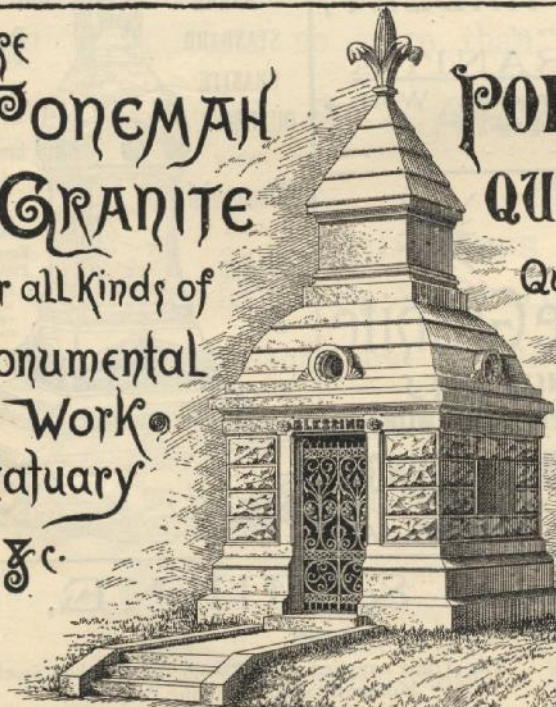 PONEMAH
GRANITE
r all kinds of
onumental
Work
tatuary
&c.
PO
QU
Qu